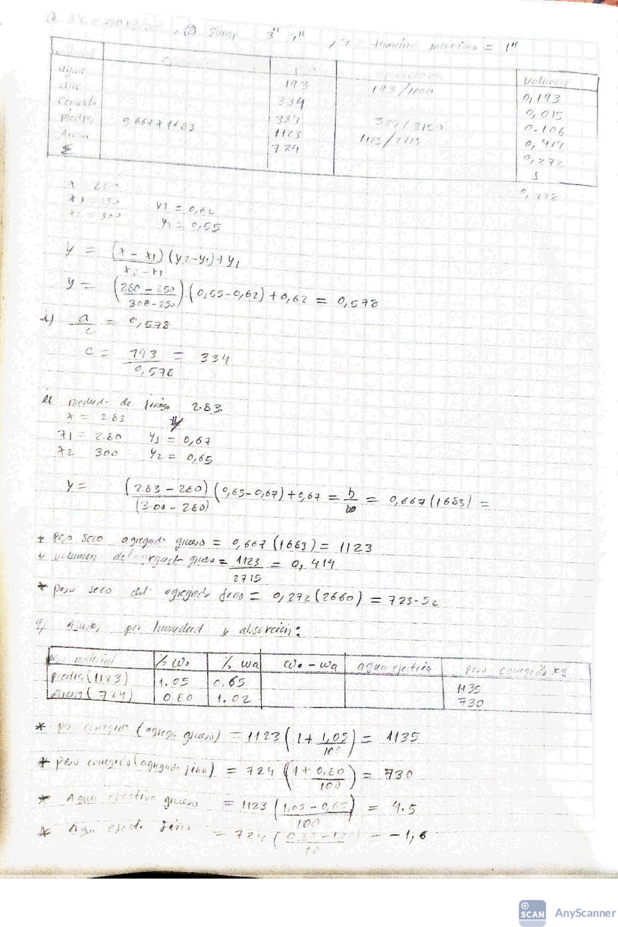 , (2) Slump 3" 4" , tamaño maximo = 1"
material Volumen
agua 193 193/1000 0,193
aire 0,015
Cemento 334 334/3150 0.106
Piedra 0,667*1683 1123 1123/2715 0,414
Arena 724 0,272
Σ 1
0,728
x 280
x1 = 250 y1 = 0,62
x2 = 300 y2 = 0,55
y = (x - x1)/(x2 - x1) (y2 - y1) + y1
y = (280 - 250)/(300 - 250) . (0,55 - 0,62) + 0,62 = 0,578
a/c = 0,578
c = 193/0,578 = 334
modulo de fineza 2.83
x = 2.83
x1 = 2.80 y1 = 0,67
x2 300 y2 = 0,65
y = (2.83 - 2.80)/(3.00 - 2.80) (0,65 - 0,67) + 0,67 = b/bo = 0,667 (1683) =
* Peso seco agregado grueso = 0,667 (1683) = 1123
* volumen del agregado grueso = 1123/2715 = 0,414
* peso seco del agregado fino = 0,272 (2660) = 723.52
9) Ajuste por humedad y absorción:
material % wo % wa wo - wa agua efectiva peso corregido kg
piedra (1123) 1.05 0.65 1135
arena (724) 0.80 1.02 730
* peso corregido (agrega grueso) = 1123 (1 + 1,05/100) = 1135
* peso corregido (agregado fino) = 724 (1 + 0,80/100) = 730
* Agua efectiva grueso = 1123 (1,05 - 0,65/100) = 4.5
* Agua fino = 724 ( = -1,6
SCAN AnyScanner